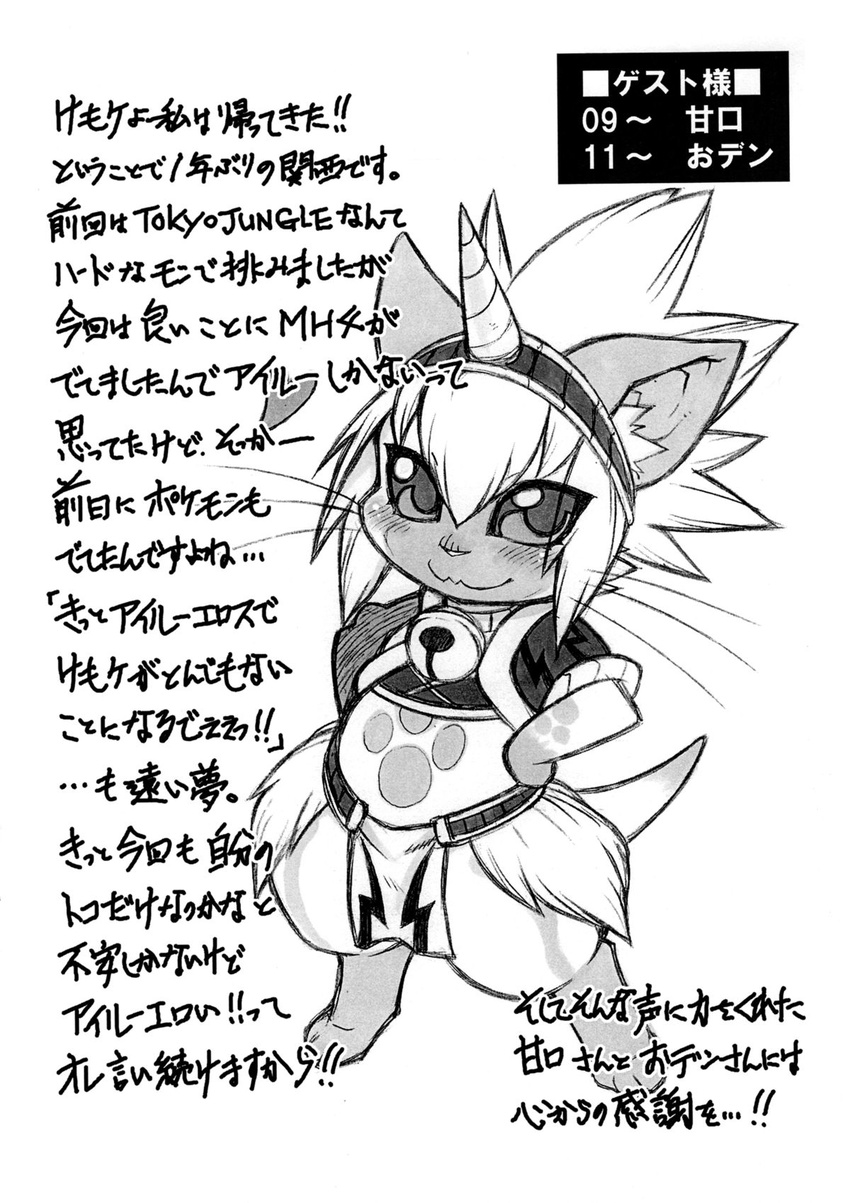 ■ゲスト様■
09～ 甘口
11～ おデン
けもケよー私は帰ってきた!!
ということで1年ぶりの関西です。
前回はTOKYO JUNGLEなんて
ハードなモンで挑みましたが
今回は良いことにMH4が
でてましたんでアイルーしかないって
思ってたけど、そっかー
前日にポケモンも
でてたんですよね…
「きっとアイルーエロスで
けもケがとんでもない
ことになるでえぇっ!!」
…も遠い夢。
きっと今回も自分の
トコだけなのかなと
不安しかないけど
アイルーエロい!!って
オレ言い続けますから!!
そしてそんな声に力をくれた
甘口さんとおデンさんには
心からの感謝を…!!